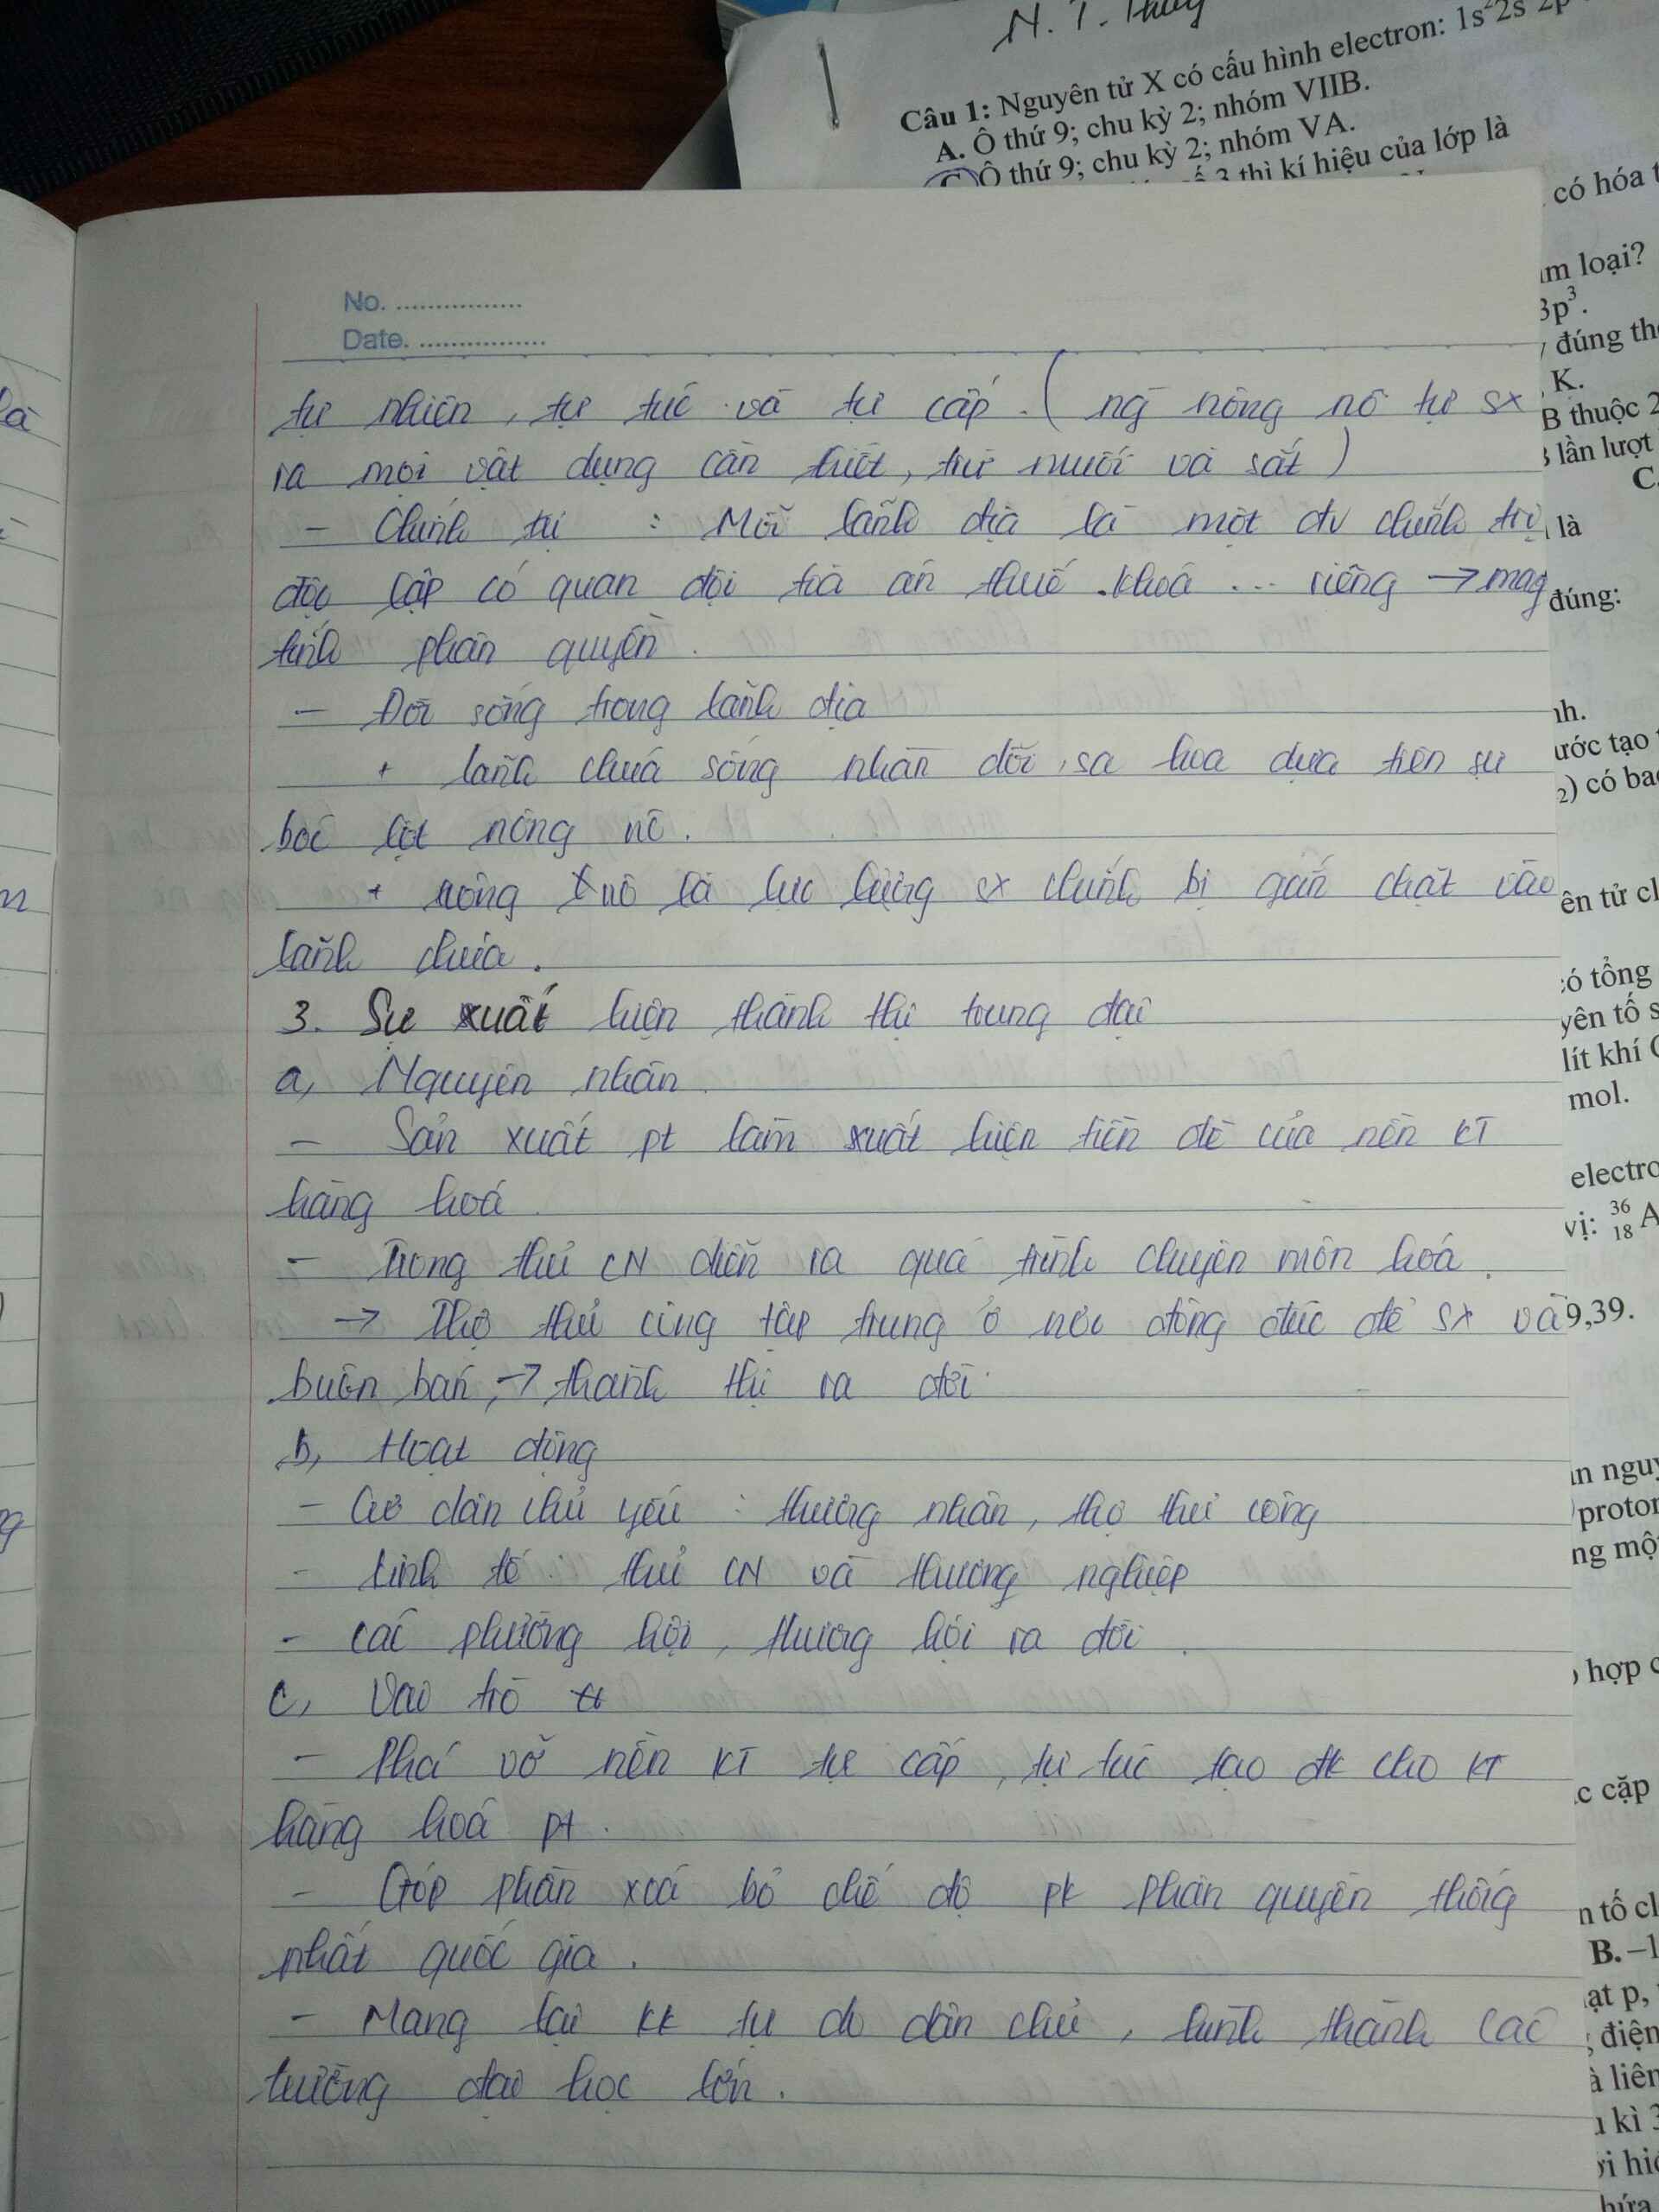 N. T. Thuỷ
Câu 1: Nguyên tử X có cấu hình electron: 1s²2s²2p
A. Ô thứ 9; chu kỳ 2; nhóm VIIB.
C. Ô thứ 9; chu kỳ 2; nhóm VA.
3 thì kí hiệu của lớp là
có hóa t
ım loại?
3p³.
đúng th
K.
B thuộc 2
lần lượt
C.
là
đúng:
nh.
ước tạo t
₂) có ba
ên tử cl
có tổng
yên tố s
lít khí
mol.
electro
vị: ³⁶₁₈A
9,39.
n nguy
proton
ng mộ
hợp c
c cặp
n tố cl
B. –1
ạt p,
điện
à liên
kì 3
hứa
No.
Date.
tự nhiên, tự túc và tự cấp. ( ng nông nô tự sx
ra mọi vật dụng cần thiết, trừ muối và sắt )
- Chính trị : Mỗi lãnh địa là một đv chính trị
độc lập có quân đội toà án thuế khoá ... riêng → mag
tính phân quyền.
- Đời sống trong lãnh địa
+ lãnh chúa sống nhàn dỗi, sa hoa dựa trên sự
bóc lột nông nô.
+ nông nô là lực lượng sx chính bị gắn chặt vào
lãnh chúa.
3. Sự xuất hiện thành thị trung đại
a, Nguyên nhân
- Sản xuất pt làm xuất hiện tiền đề của nền KT
hàng hoá
- Trong thủ CN diễn ra quá trình chuyên môn hoá.
→ Thợ thủ công tập trung ở nơi đông đúc để sx và
buôn bán, → thành thị ra đời
b, Hoạt động
- Cư dân chủ yếu : thương nhân, thợ thủ công
- kinh tế : thủ CN và thương nghiệp
- các phường hội, thương hội ra đời.
c, Vao trò
- Phá vỡ nền KT tự cấp, tự túc tạo đk cho KT
hàng hoá pt.
- Góp phần xoá bỏ chế độ pk phân quyền thống
nhất quốc gia.
- Mang lại kk tự do dân chủ, hình thành các
trường đại học lớn.